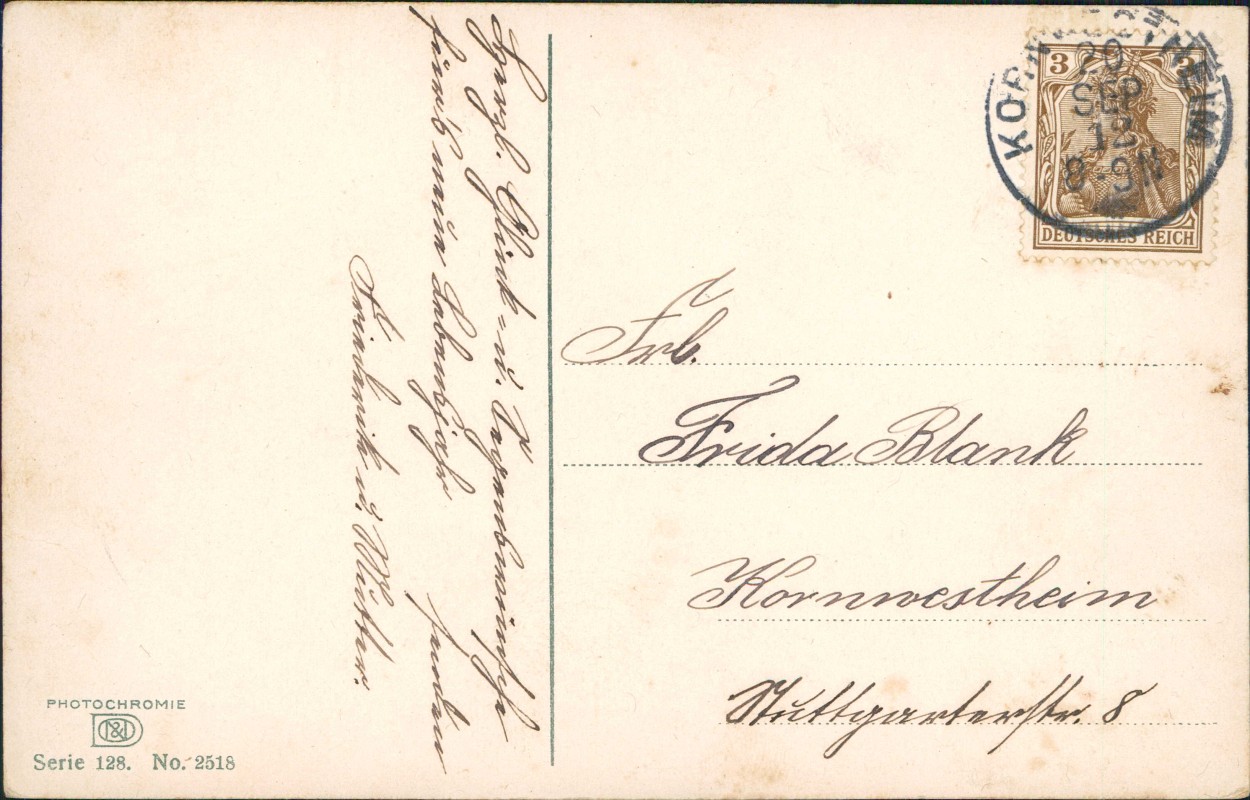 Herzl. Glück- u. Segenswünsche
fürs neue Lebensjahr senden
Friederik u. Mutter.
KORNWESTHEIM
20
SEP
12
8-9N
3 3
DEUTSCHES REICH
Frl.
Frida Blank
Kornwestheim
Stuttgarterstr. 8
PHOTOCHROMIE
Serie 128. No. 2518